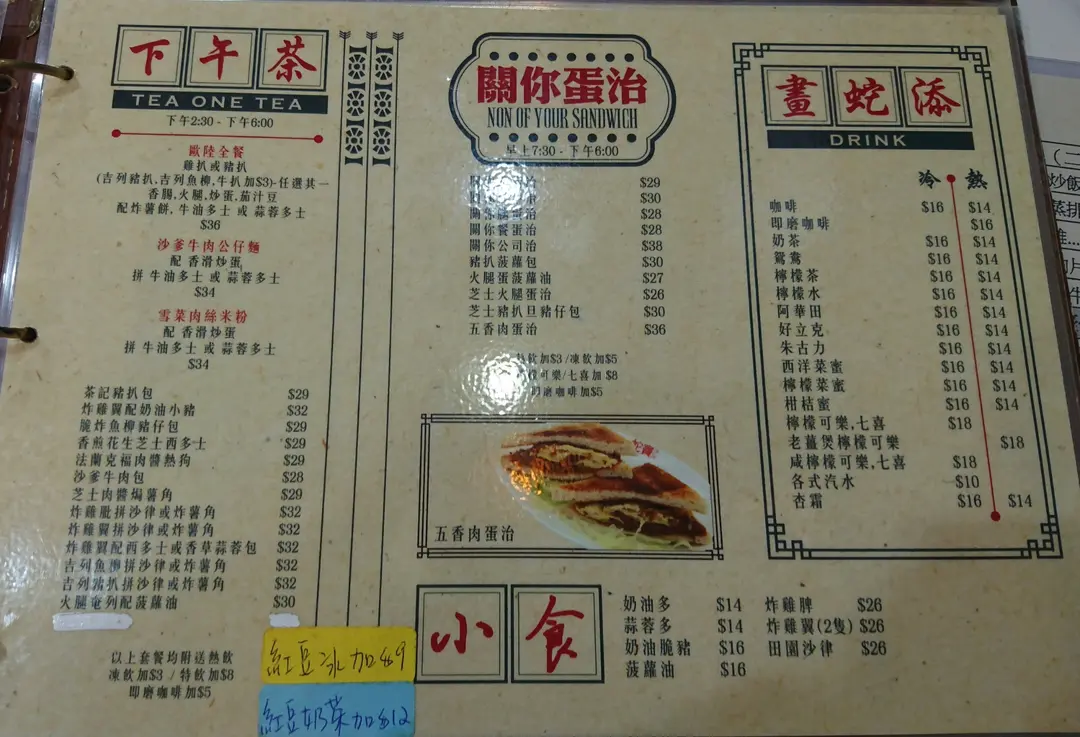 下午茶
TEA ONE TEA
下午2:30 - 下午6:00
歐陸全餐
雞扒或豬扒
(吉列豬扒,吉列魚柳,牛扒加$3)-任選其一
香腸,火腿,炒蛋,茄汁豆
配炸薯餅, 牛油多士 或 蒜蓉多士
$36
沙爹牛肉公仔麵
配 香滑炒蛋
拼 牛油多士 或 蒜蓉多士
$34
雪菜肉絲米粉
配 香滑炒蛋
拼 牛油多士 或 蒜蓉多士
$34
茶記豬扒包 $29
炸雞翼配奶油小豬 $32
脆炸魚柳豬仔包 $29
香煎花生芝士西多士 $29
法蘭克福肉醬熱狗 $29
沙爹牛肉包 $28
芝士肉醬焗薯角 $29
炸雞髀拼沙律或炸薯角 $32
炸雞翼拼沙律或炸薯角 $32
炸雞翼配西多士或香草蒜蓉包 $32
吉列魚柳拼沙律或炸薯角 $32
吉列豬扒拼沙律或炸薯角 $32
火腿奄列配菠蘿油 $30
以上套餐均附送熱飲
凍飲加$3 / 特飲加$8
即磨咖啡加$5
紅豆冰加$9
紅豆奶茶加$12
關你蛋治
NON OF YOUR SANDWICH
早上7:30 - 下午6:00
治 $29
$30
關你 治 $28
關你餐蛋治 $28
關你公司治 $38
豬扒菠蘿包 $30
火腿蛋菠蘿油 $27
芝士火腿蛋治 $26
芝士豬扒旦豬仔包 $30
五香肉蛋治 $36
飲加$3 /凍飲加$5
可樂/七喜加 $8
即磨咖啡加$5
五香肉蛋治
小食
奶油多 $14
蒜蓉多 $14
奶油脆豬 $16
菠蘿油 $16
炸雞脾 $26
炸雞翼(2隻) $26
田園沙律 $26
畫蛇添
DRINK
冷 熱
咖啡 $16 $14
即磨咖啡 $16
奶茶 $16 $14
鴛鴦 $16 $14
檸檬茶 $16 $14
檸檬水 $16 $14
阿華田 $16 $14
好立克 $16 $14
朱古力 $16 $14
西洋菜蜜 $16 $14
檸檬菜蜜 $16 $14
柑桔蜜 $16 $14
檸檬可樂,七喜 $18
老薑煲檸檬可樂 $18
咸檸檬可樂,七喜 $18
各式汽水 $10
杏霜 $16 $14
炒飯